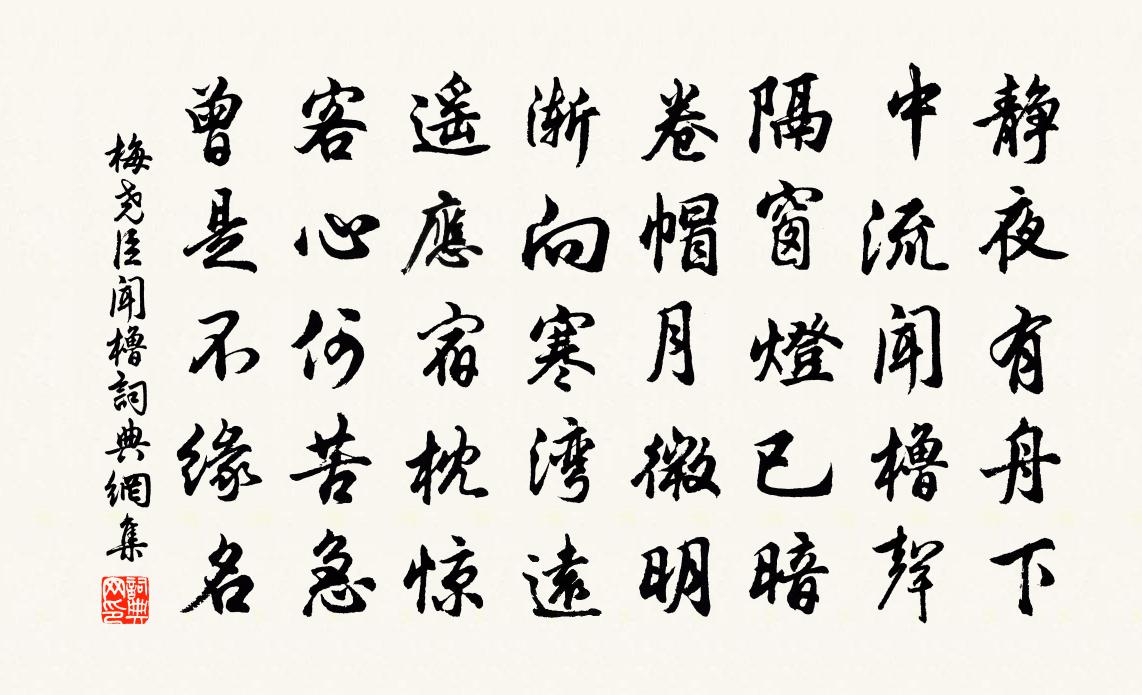 静夜有舟下
中流闻櫓聲
隔窗燈已暗
卷帽月微明
渐向寒湾遠
遥應宿枕惊
客心何苦急
曾是不缘名
梅尧臣闻櫓詞典網集
詞典网印